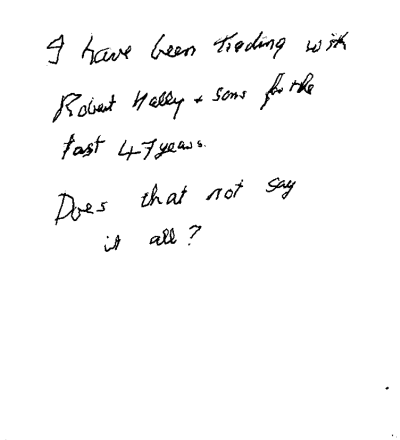 I have been trading with
Robert Hally + sons for the
last 47 years.
Does that not say
it all?